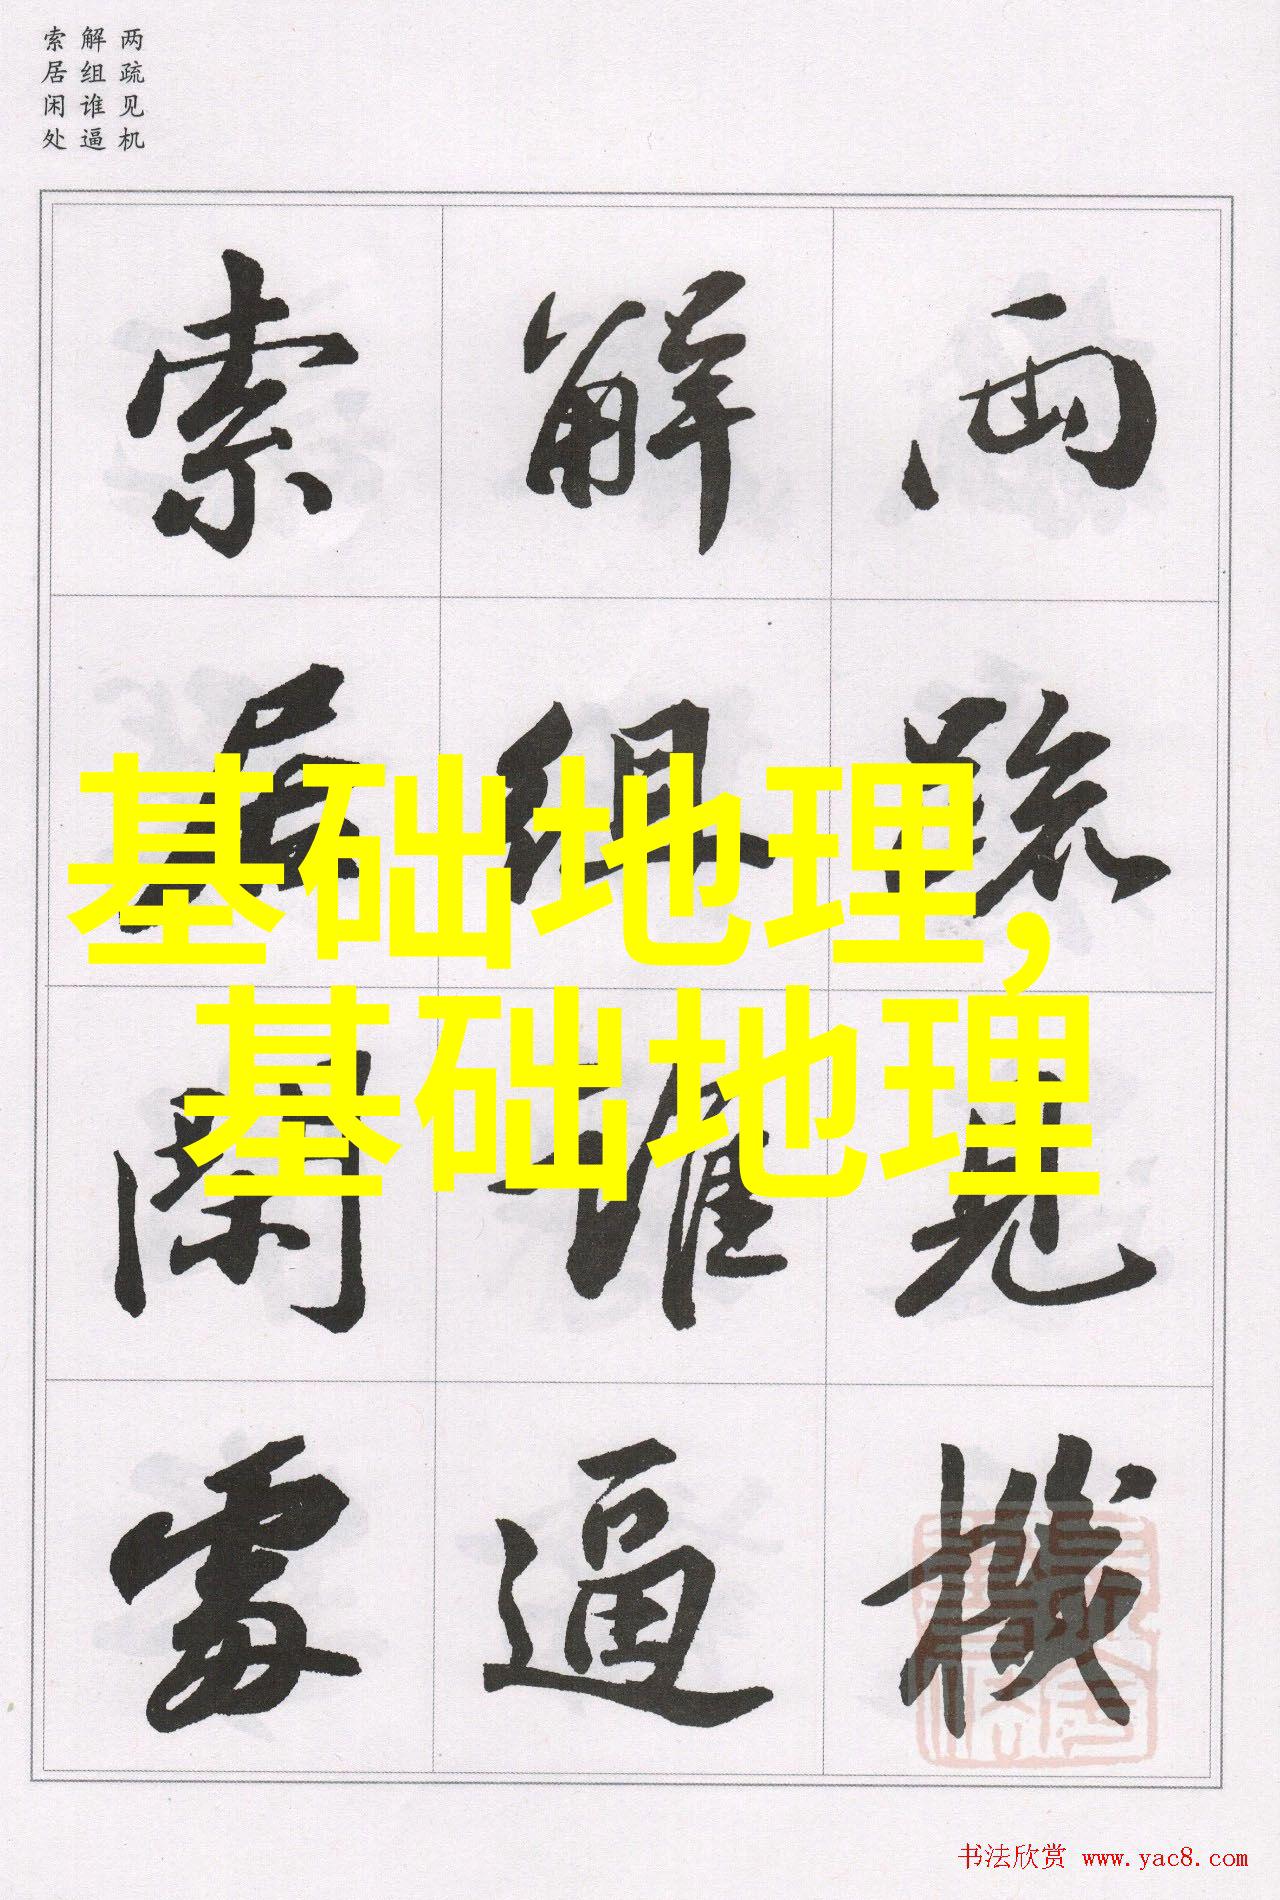 两疏见机
解组谁逼
索居闲处
两疏見機
解組誰逼
索居閑處
基础地理,
基础地理
书法欣赏 www.yac8.com